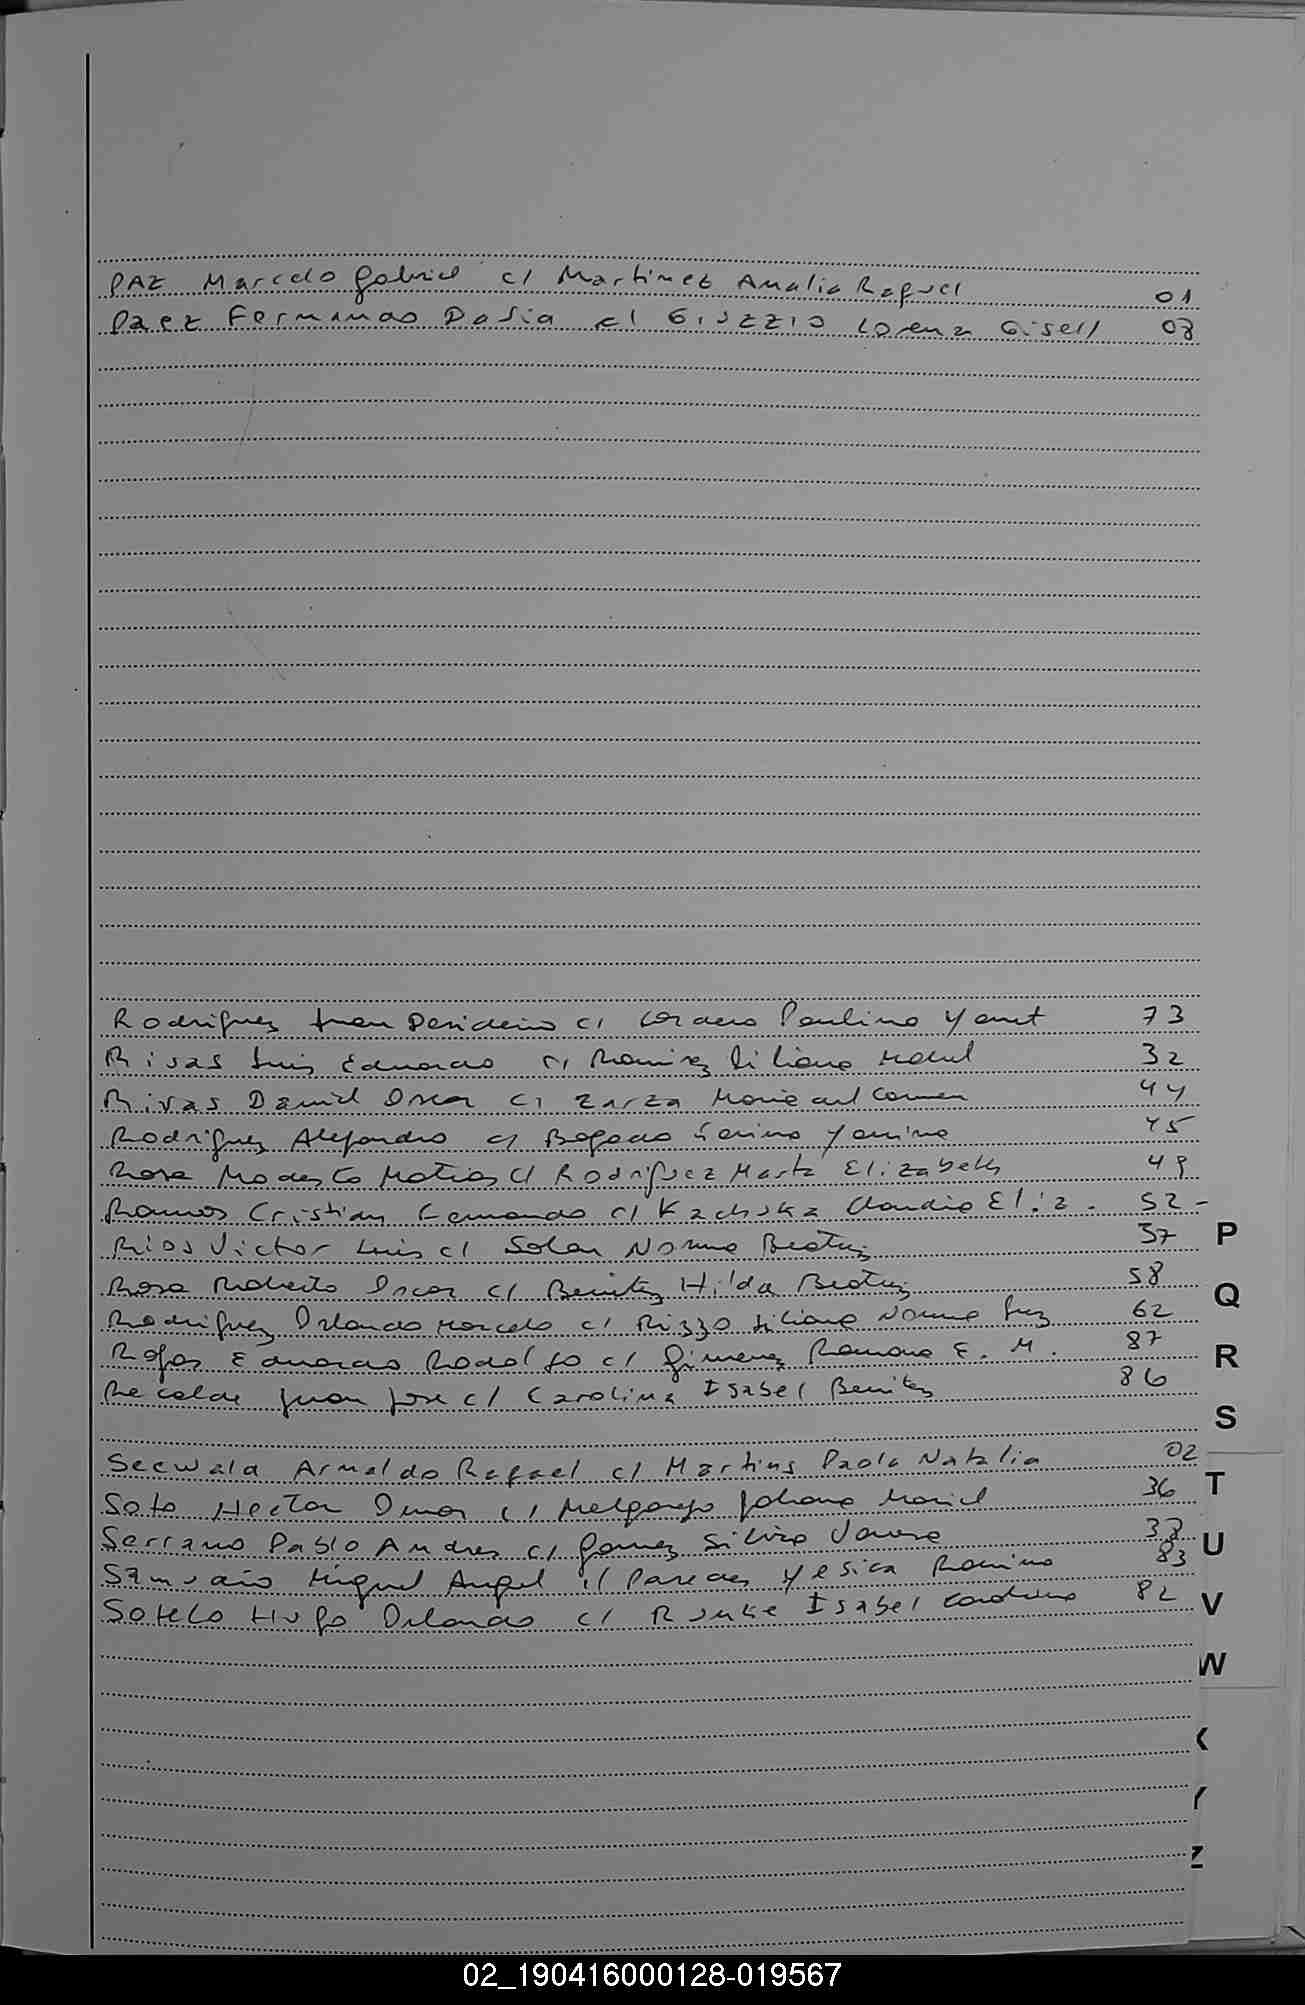 PAZ Marcelo Gabriel c/ Martinez Analia Raquel 01
Paez Fernando Dasia c/ Giuzzio Lorena Gisell 03
Rodriguez Juan Desiderio c/ Cordero Paulina Yanet 73
Rivas Luis Eduardo c/ Ramirez Liliana Mabel 32
Rivas Daniel Oscar c/ Zarza Maria del Carmen 44
Rodriguez Alejandro c/ Bogado Yanina 45
Rosa Modesto Matias c/ Rodriguez Marta Elizabeth 49
Ramos Cristian Fernando c/ Kachuka Claudia Eliz. 52-
Rios Victor Luis c/ Solan Norma Beatriz 57
Rosa Roberto Oscar c/ Benitez Hilda Beatriz 58
Rodriguez Orlando Marcelo c/ Rizzo Liliana Norma Luz 62
Rojas Eduardo Rodolfo c/ Gimenez Ramona E. M. 87
Recalde Juan Jose c/ Carolina Isabel Benitez 86
Seewald Arnaldo Rafael c/ Martins Paola Natalia 02
Soto Hector Omar c/ Melgarejo Johana Mariel 36
Serrano Pablo Andres c/ Gomez Silvia Vanesa
Miguel Angel c/ Paredes Yesica Romina 83
Sotelo Hugo Orlando c/ Isabel 82
P
Q
R
S
T
U
V
W
X
Y
Z
02_190416000128-019567